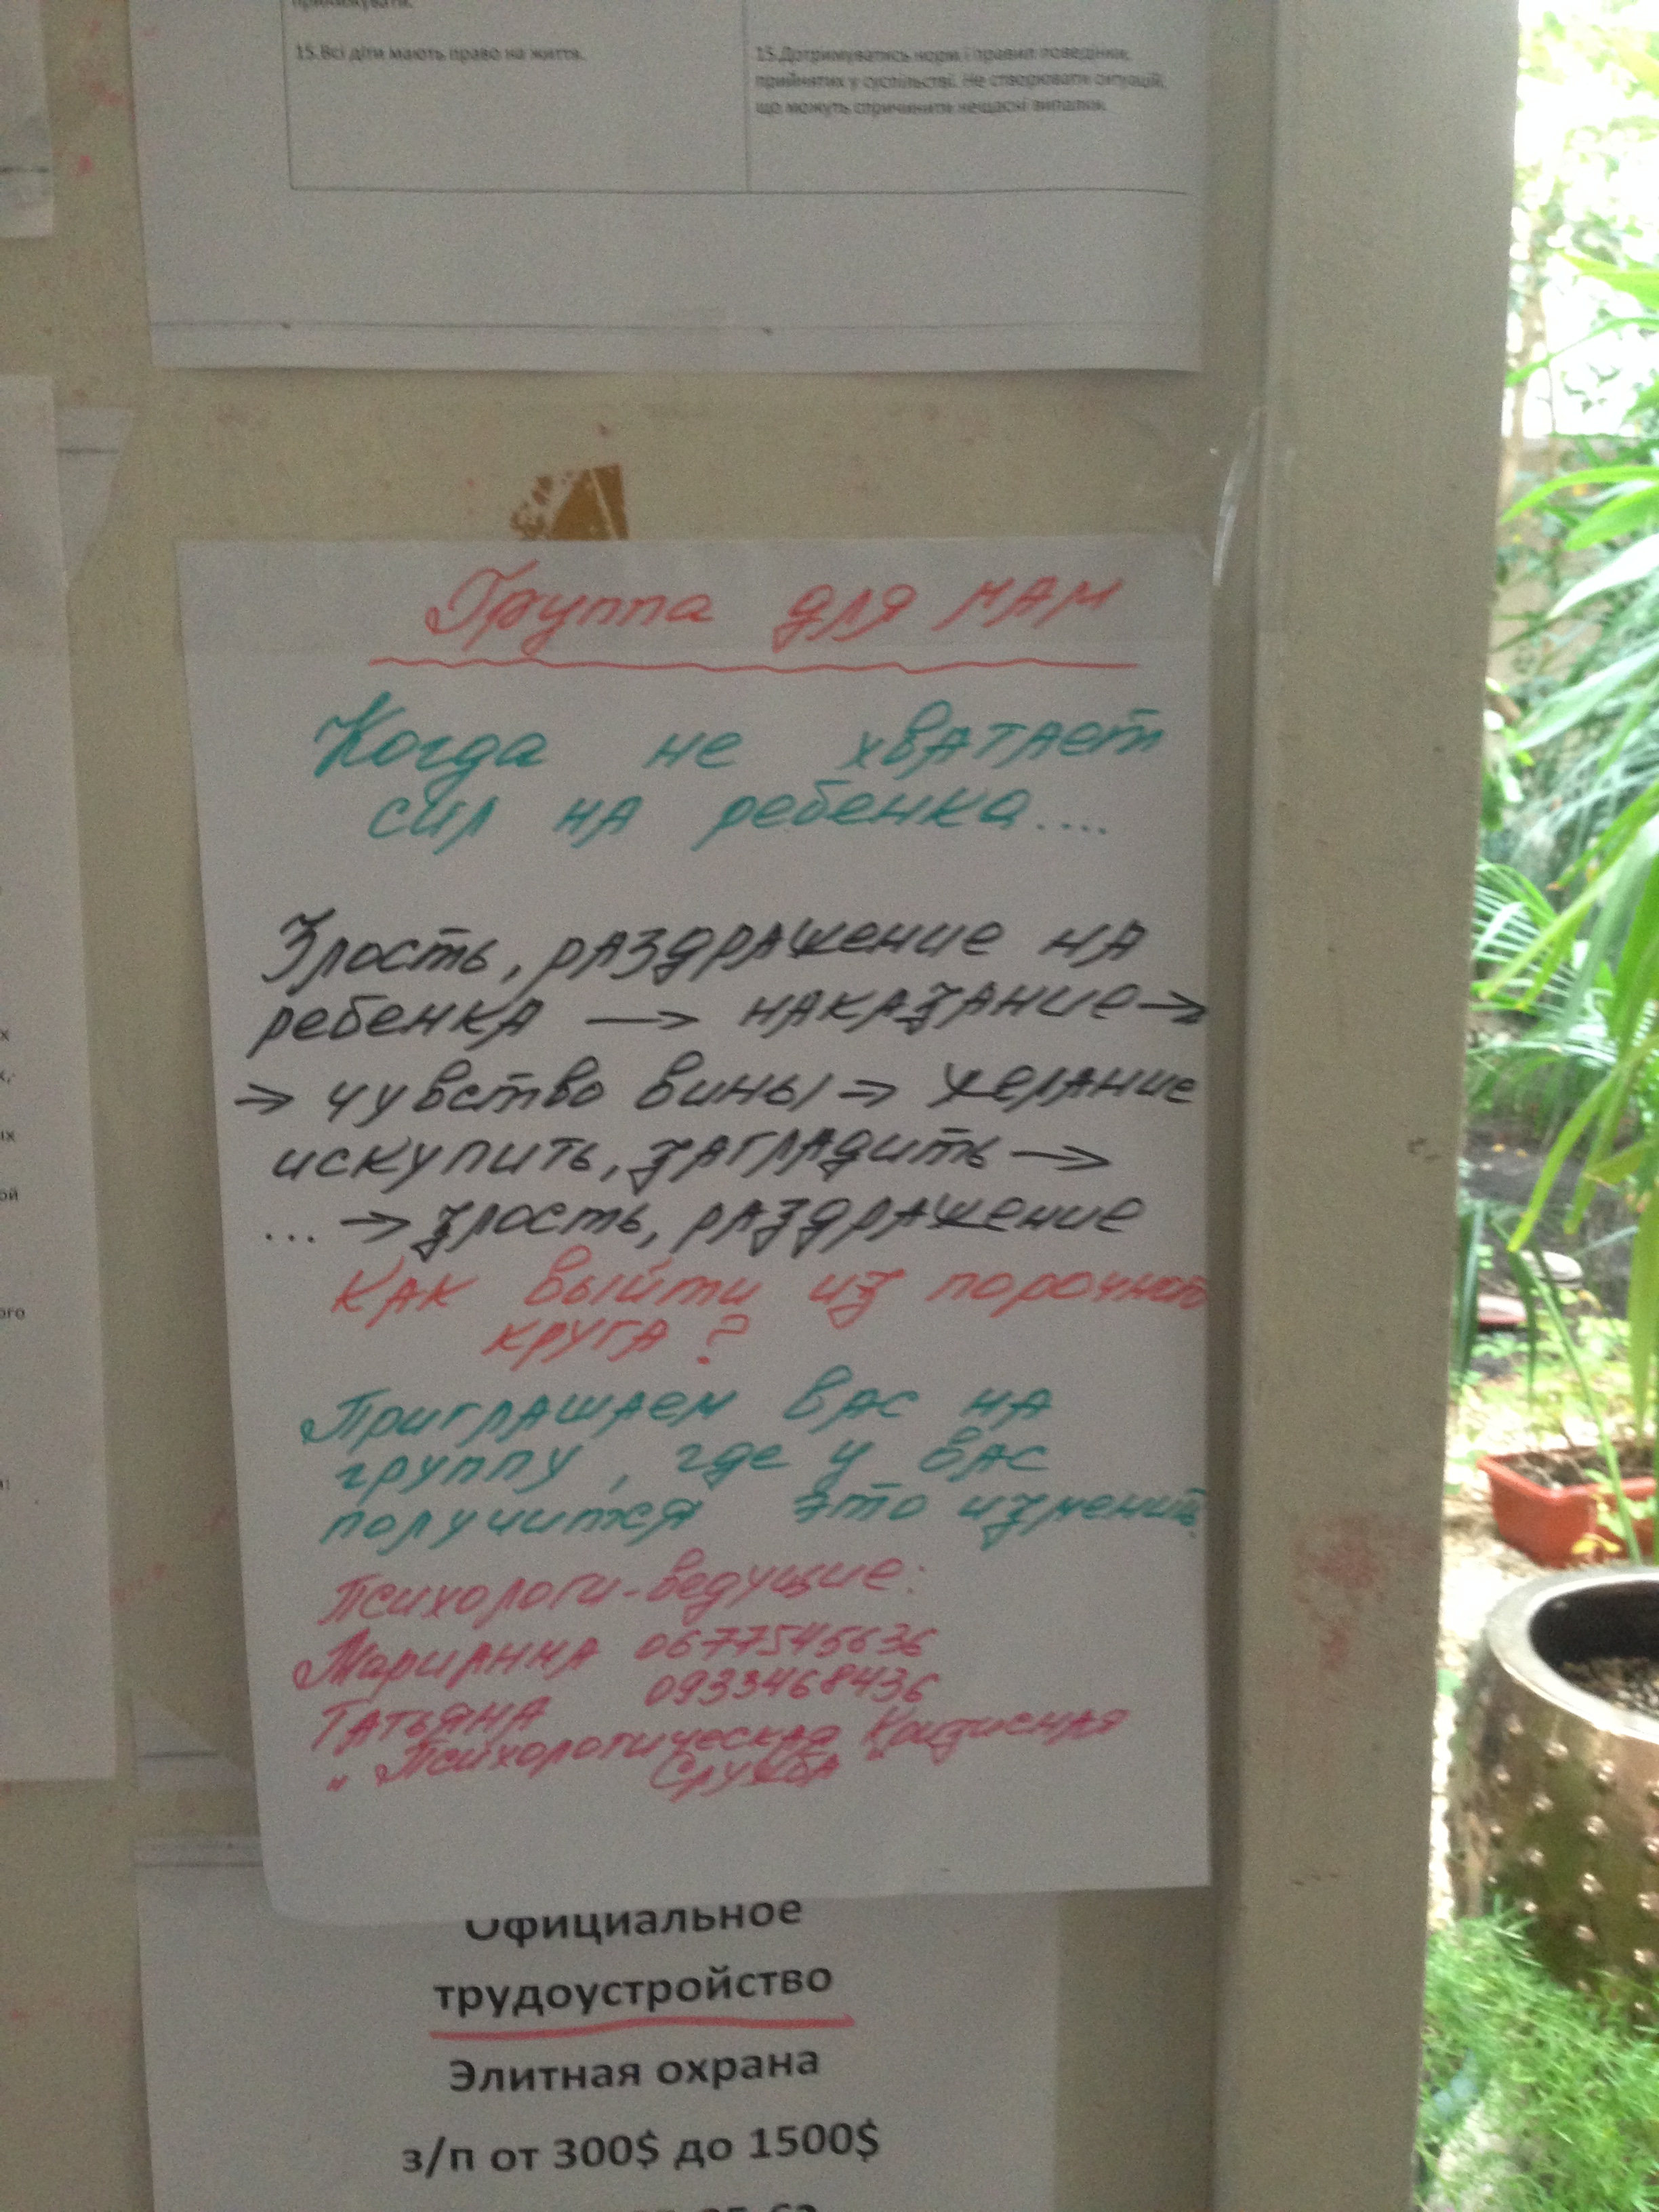 15.Всі діти мають право на життя.
15.Дотримуватись норм і правил поведінки,
прийнятих у суспільстві. Не створювати ситуацій,
що можуть спричинити нещасні випадки.
Группа для мам
Когда не хватает
сил на ребенка....
Злость, раздражение на
ребенка → наказание →
→ чувство вины → желание
искупить, загладить →
... → злость, раздражение
Как выйти из порочного
круга?
Приглашаем вас на
группу, где у вас
получится это изменить
Психологи-ведущие:
Марианна 0677545636
Татьяна 0933468436
"Психологическая Кризисная
Служба"
Официальное
трудоустройство
Элитная охрана
з/п от 300$ до 1500$